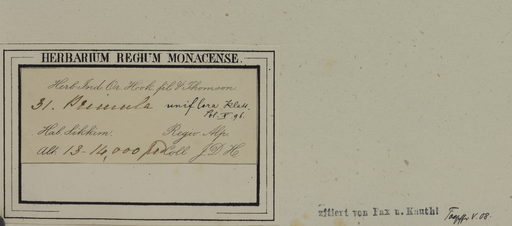 HERBARIUM REGIUM MONACENSE.
Herb. Ind. Or. Hook. fil. & Thomson
31. Primula uniflora Klatt.
Hab. Sikkim Regio Alp.
Alt. 13-14,000 ped. Coll. J D H
zitiert von Pax u. Knuth! V. 08.